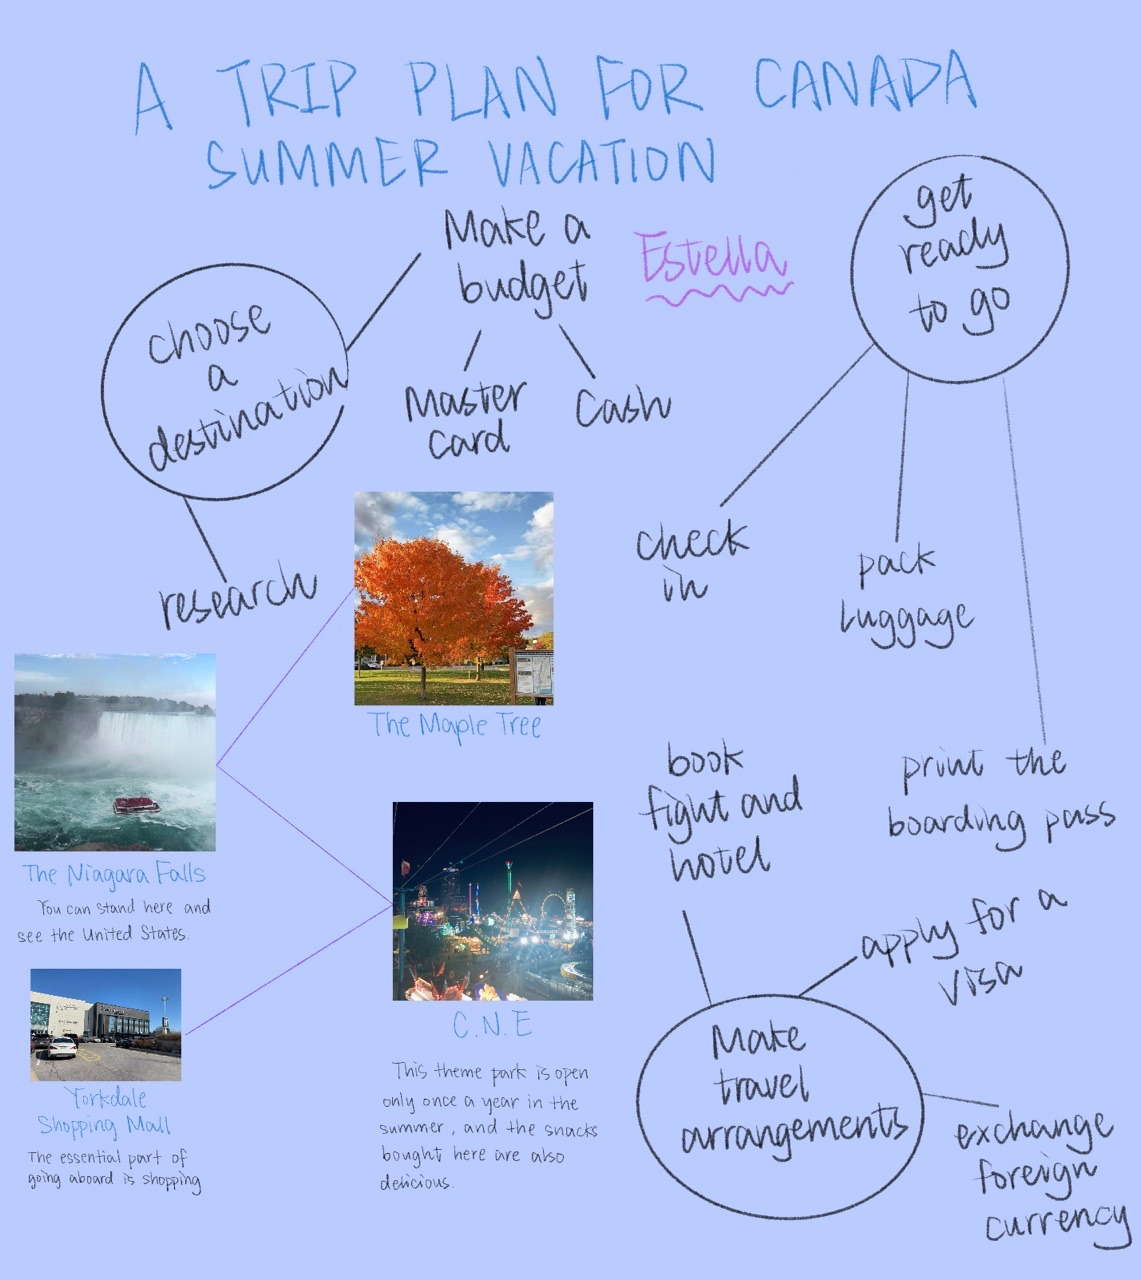 A TRIP PLAN FOR CANADA
SUMMER VACATION
Estella
choose
a
destination
Make a
budget
Master
card
Cash
research
get
ready
to go
check
in
pack
luggage
print the
boarding pass
The Maple Tree
The Niagara Falls
You can stand here and
see the United States.
C.N.E
This theme park is open
only once a year in the
summer, and the snacks
bought here are also
delicious.
Yorkdale
Shopping Mall
The essential part of
going aboard is shopping
book
fight and
hotel
apply for a
visa
Make
travel
arrangements
exchange
foreign
currency